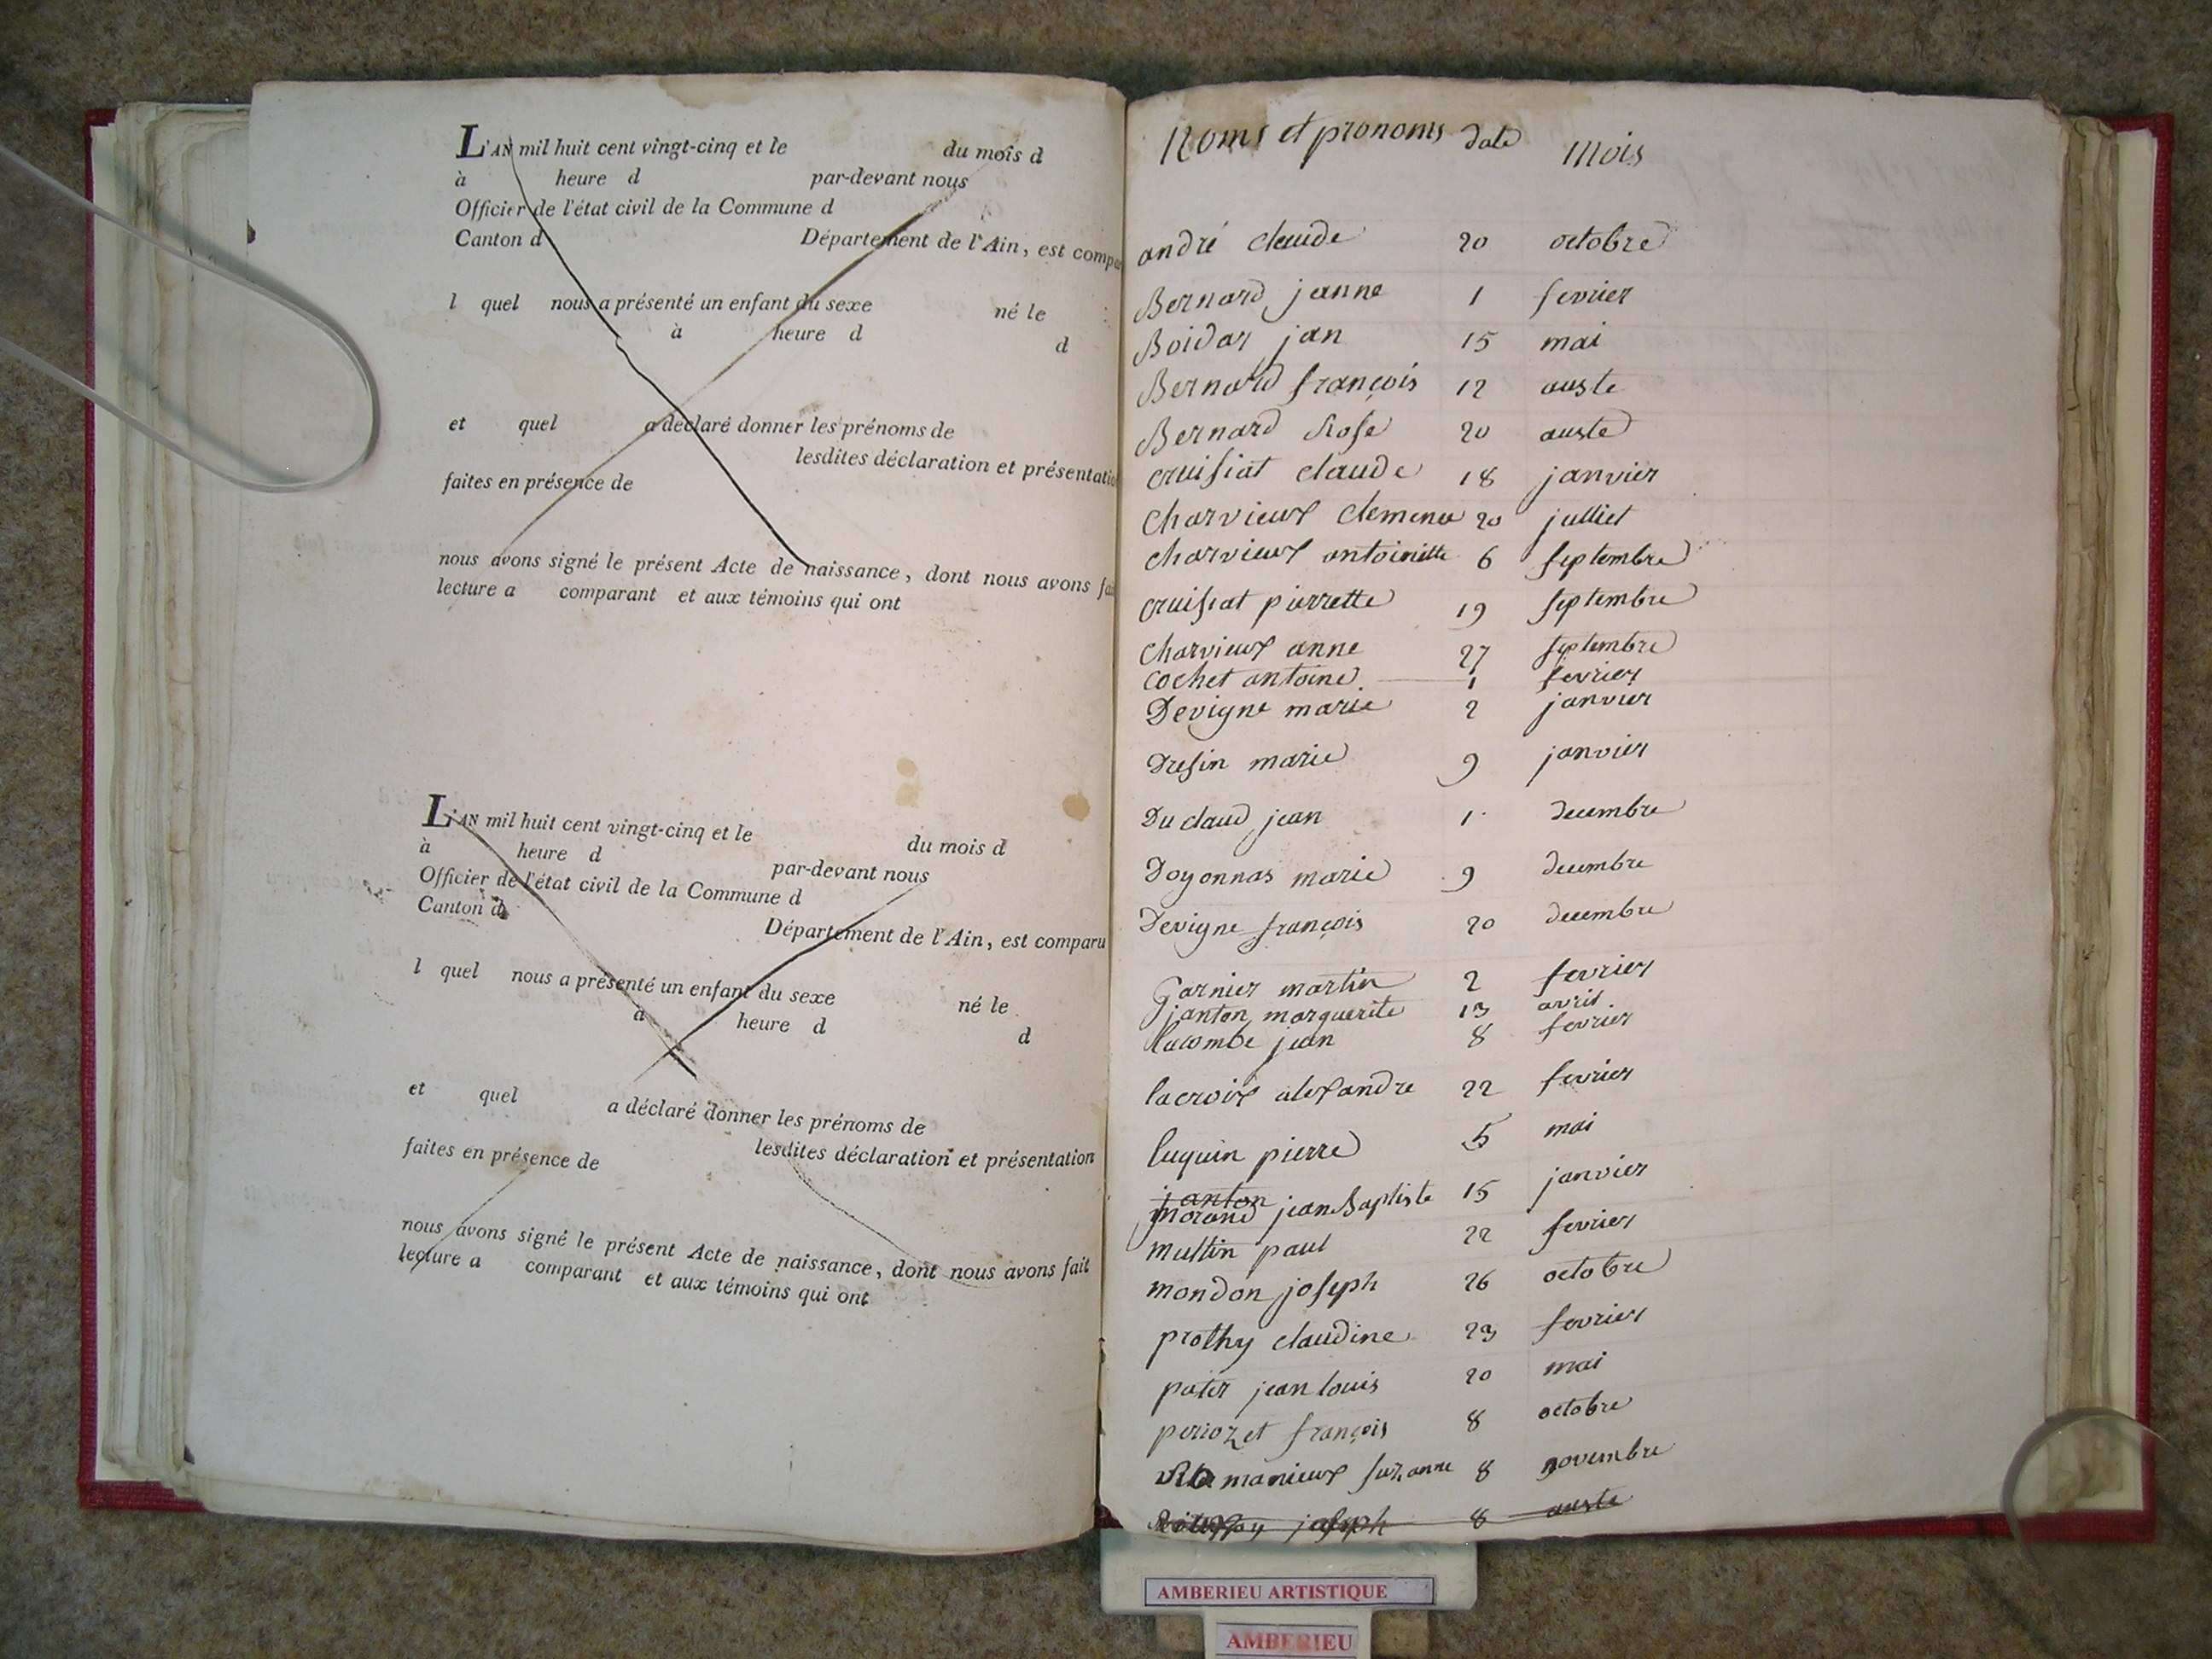 L'AN mil huit cent vingt-cinq et le du mois d
à heure d par-devant nous
Officier de l'état civil de la Commune d
Canton d Département de l'Ain, est compa
l quel nous a présenté un enfant du sexe né le
à heure d d
et quel a déclaré donner les prénoms de
lesdites déclaration et présentatio
faites en présence de
nous avons signé le présent Acte de naissance, dont nous avons fai
lecture a comparant et aux témoins qui ont
L'AN mil huit cent vingt-cinq et le du mois d
à heure d par-devant nous
Officier de l'état civil de la Commune d
Canton d Département de l'Ain, est comparu
l quel nous a présenté un enfant du sexe né le
à heure d d
et quel a déclaré donner les prénoms de
lesdites déclaration et présentation
faites en présence de
nous avons signé le présent Acte de naissance, dont nous avons fait
lecture a comparant et aux témoins qui ont
Noms et pronoms date Mois
andré claude 20 octobre
Bernard janne 1 fevrier
Boidar jan 15 mai
Bernard françois 12 auste
Bernard Rose 20 auste
cruisiat claude 18 janvier
Charvieux clemence 20 julliet
charvieux antoinitte 6 septembre
cruisiat pierrette 19 septembre
Charvieux anne 27 septembre
cochet antoine 1 fevrier
Devigne marie 2 janvier
Dresin marie 9 janvier
Du claud jean 1 decembre
Doyonnas marie 9 decembre
Devigne françois 20 decembre
Garnier martin 2 fevrier
janton marguerite 13 avril.
lacombe jean 8 fevrier
lacroix alexandre 22 fevrier
luquin pierre 5 mai
janton
morand jean Baptiste 15 janvier
multin paul 22 fevrier
mondon joseph 26 octobre
prothy claudine 23 fevrier
pater jean louis 20 mai
perrozet françois 8 octobre
manieux suzanne 8 novembre
joseph 8 auste
AMBERIEU ARTISTIQUE
AMBERIEU